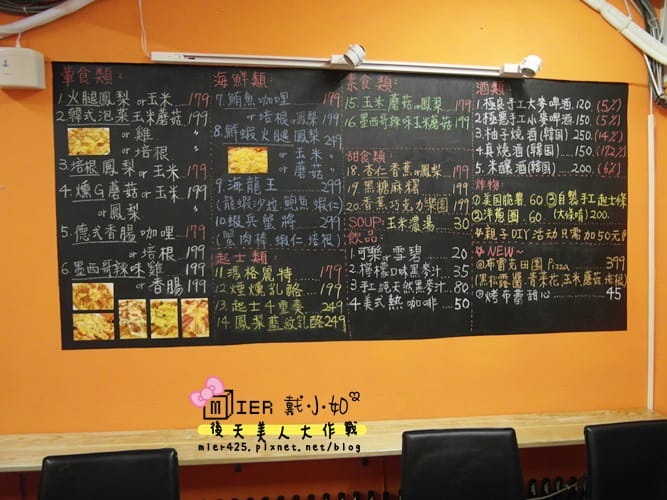 葷食類:
1.火腿鳳梨or玉米...179
2.韓式泡菜玉米蘑菇199
or 雞 〃
or 培根 〃
3.培根鳳梨or玉米
179
4.燻G蘑菇or玉米199
or鳳梨
5.德式香腸咖哩..179
or培根.199
6.墨西哥辣味雞199
or香腸199
海鮮類:
7.鮪魚咖哩......199
or培根or鳳梨199
8.鮮蝦火腿鳳梨249
or玉米 〃
or蘑菇 〃
9.海龍王......299
(龍蝦沙拉.鮑魚.蝦仁)
10.蝦兵蟹將...299
(蟹肉棒.蝦仁.培根)
起士類:
11.瑪格麗特....179
12.煙燻乳酪...199
13.起士4重奏...249
14.鳳梨藍紋乳酪249
素食類:
15.玉米蘑菇or鳳梨.199
16.墨西哥辣味玉米蘑菇199
甜食類:
18.杏仁香蕉or鳳梨.199
19.黑糖麻糬.....199
20.香蕉巧克力樂園199
SOUP:玉米濃湯...30
飲品:
1.可樂or雪碧......20
2.檸檬口味黑麥汁...35
3.手工純天然黑麥汁..80
4.美式熱咖啡.....50
酒類:
1.極良手工大麥啤酒.120.(5%)
2.極黑手工小麥啤酒.150.(5%)
3.柚子燒酒(韓國).250.(14%)
4.真燒酒(韓國)....150.(17.2%)
5.米釀酒(韓國)....200.(6%)
炸物:
①美國脆薯.60 ③自製手工起士條
②洋蔥圈.60. (大條唷)200.
親子DIY活動只需加50元
NEW~
布雷克田園Pizza......399
玉米.蘑菇.培根)
烤布蕾甜心.......45
MIER 戴·小·如
後天美人大作戰
mier425.pixnet.net/blog